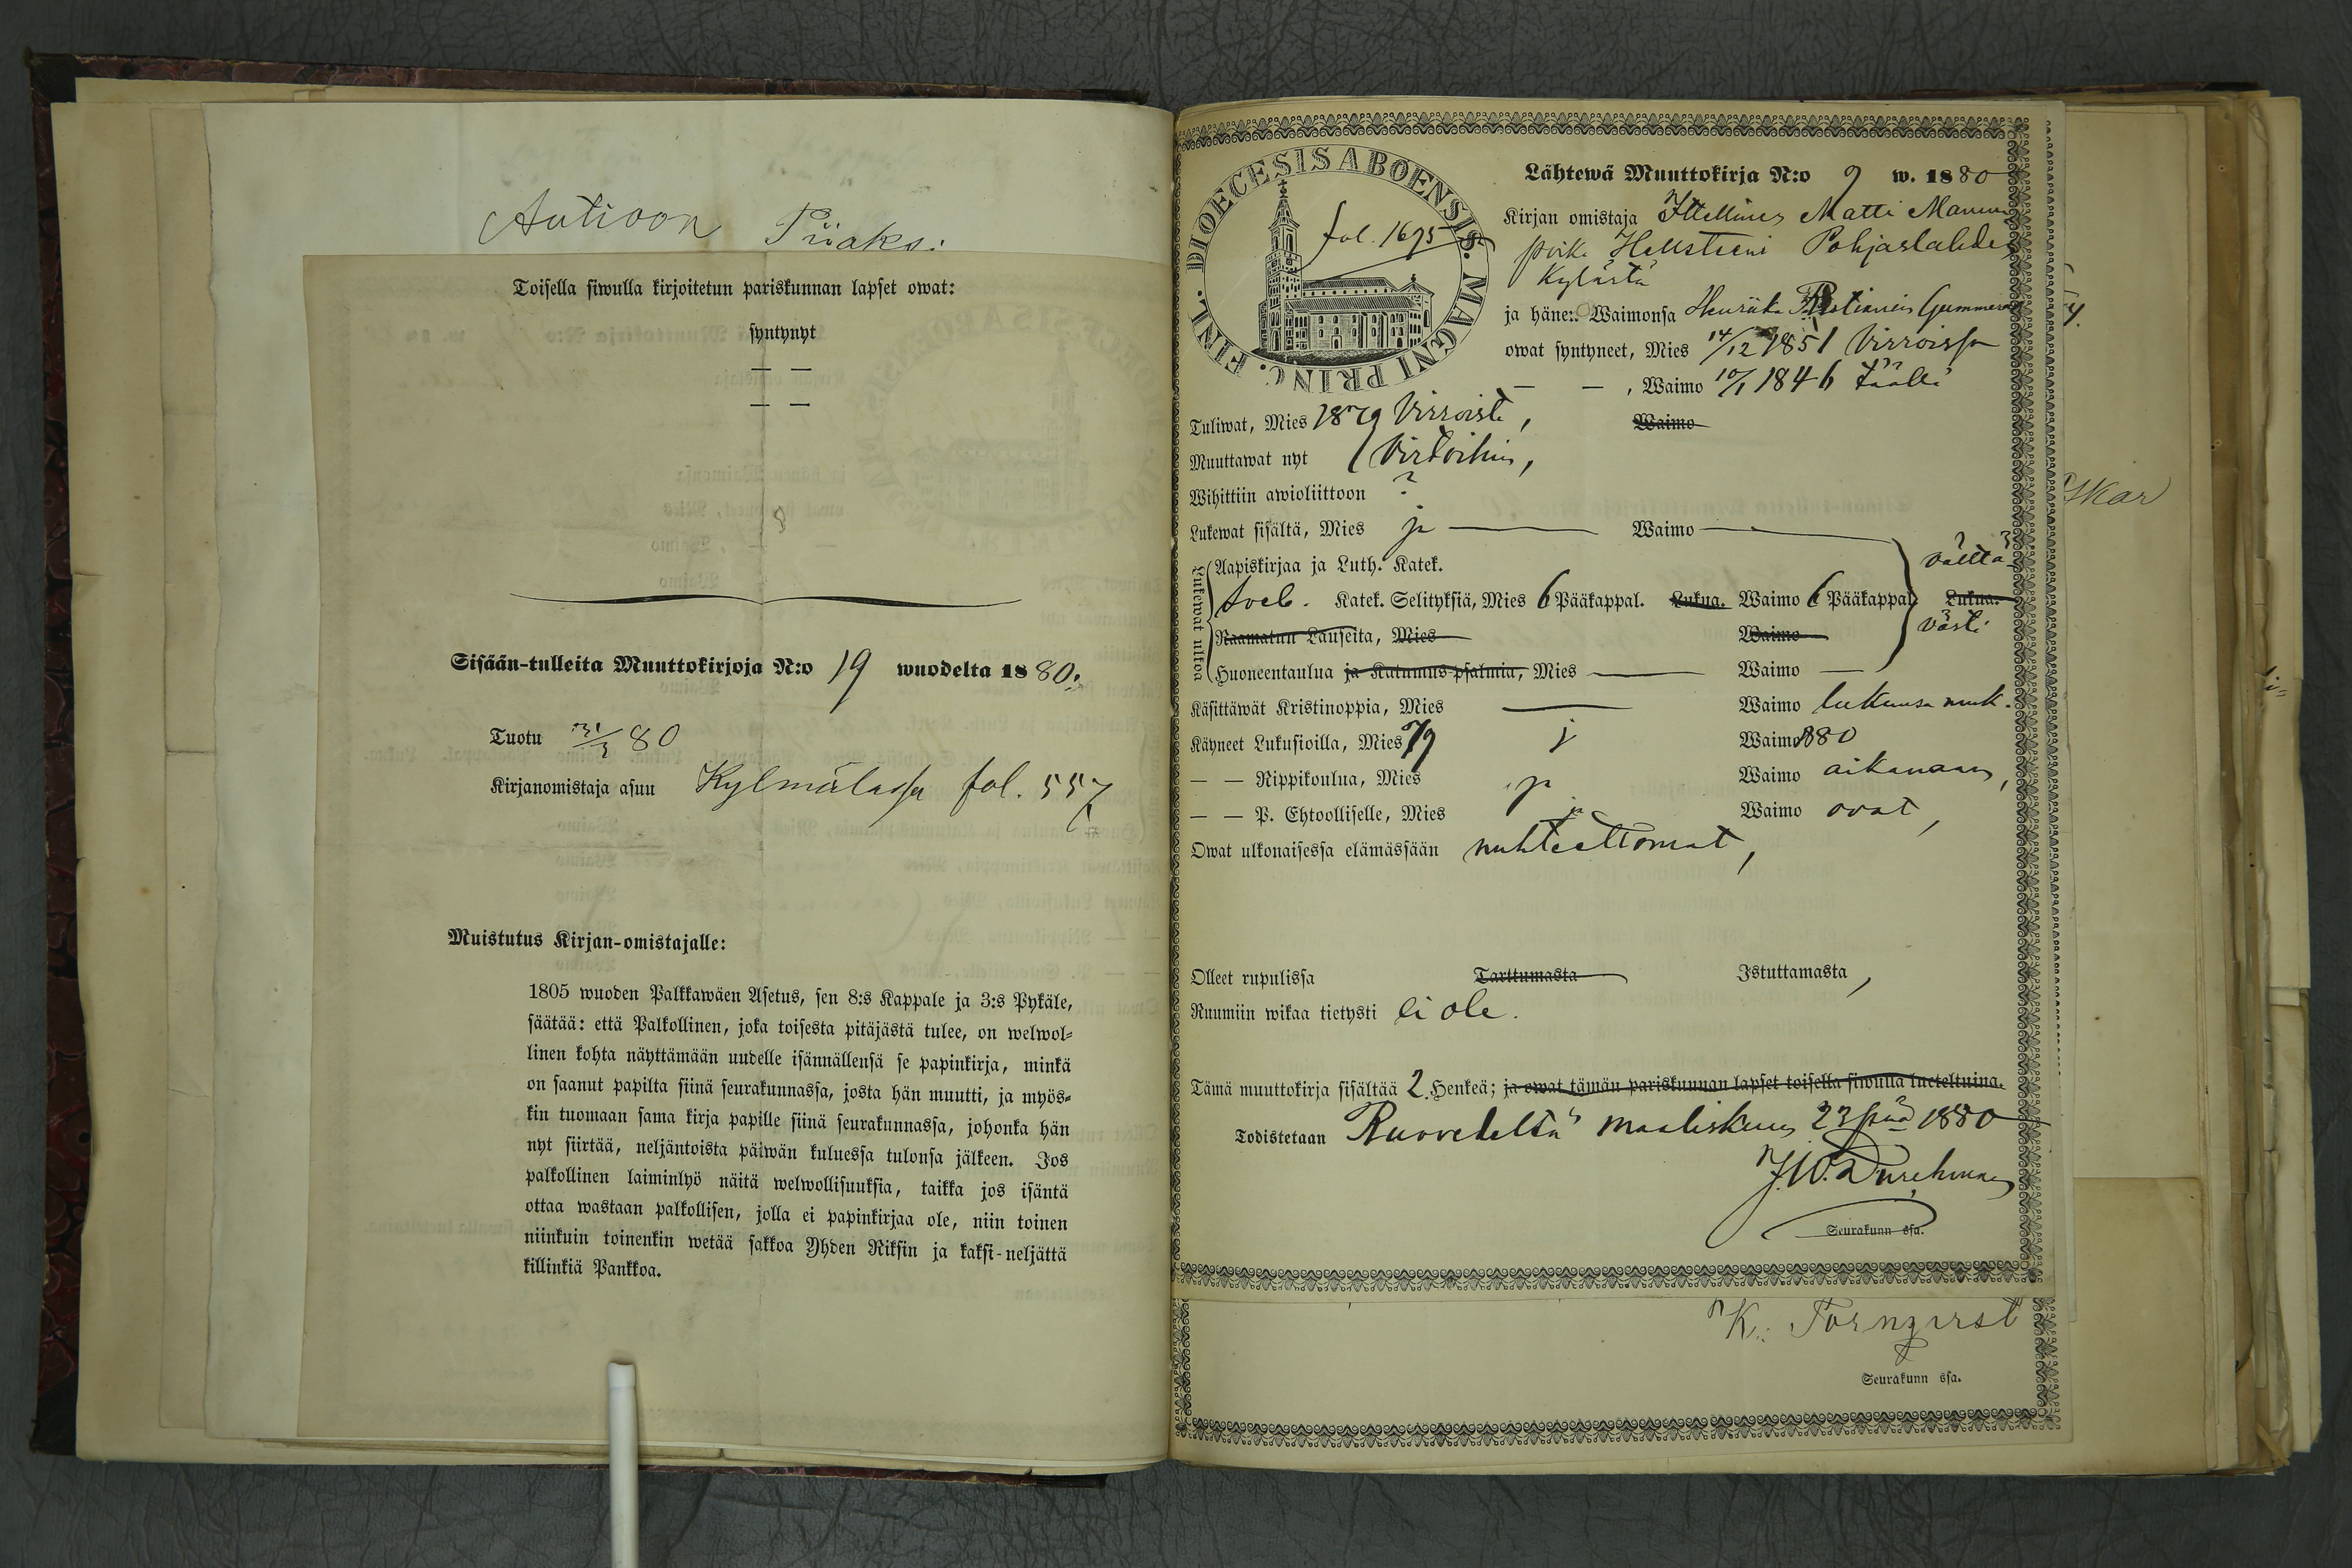 Autioon Piiaksi
Toisella siwulla kirjoitetun pariskunnan lapset owat:
syntynyt
— —
— —
8
Sisään-tulleita Muuttokirjoja N:o 19 wuodelta 1880.
Tuotu 31/3 80
Kirjanomistaja asuu Kylmälassa fol. 557
Muistutus Kirjan-omistajalle:
1805 wuoden Palkkawäen Asetus, sen 8:s Kappale ja 3:s Pykäle,
säätää: että Palkollinen, joka toisesta pitäjästä tulee, on welwol-
linen kohta näyttämään uudelle isännällensä se papinkirja, minkä
on saanut papilta siinä seurakunnassa, josta hän muutti, ja myös-
kin tuomaan sama kirja papille siinä seurakunnassa, johonka hän
nyt siirtää, neljäntoista päiwän kuluessa tulonsa jälkeen. Jos
palkollinen laiminlyö näitä welwollisuuksia, taikka jos isäntä
ottaa wastaan palkollisen, jolla ei papinkirjaa ole, niin toinen
niinkuin toinenkin wetää sakkoa Yhden Riksin ja kaksi-neljättä
killinkiä Pankkoa.
DIOECESIS ABOENSIS. MAGNI PRINC. FINL.
fol. 1695
Lähtewä Muuttokirja N:o 9 w. 1880
Kirjan omistaja Itellinen Matti Manun
poika Hellsteeni Pohjaslahden
Kylästä
ja hänen Waimonsa Henriika
owat syntyneet, Mies 14/12 1851 Virroissa
— — , Waimo 10/1 1846 täällä
Tuliwat, Mies 1879 Virroista, Waimo
Muuttawat nyt Virtoihin,
Wihittiin awioliittoon ?
Lukewat sisältä, Mies ja — Waimo —
Lukewat ulkoa
Aapiskirjaa ja Luth. Katek. välttä-
Sveb. Katek. Selityksiä, Mies 6 Pääkappal. Lukua. Waimo 6 Pääkappal. Lukua.
västi
Raamatun Lauseita, Mies Waimo
Huoneentaulua ja Katumus-psalmia, Mies — Waimo —
Käsittäwät Kristinoppia, Mies — Waimo lukunsa muk.
Käyneet Lukusioilla, Mies 79 j Waimo 880
— — Rippikoulua, Mies ja Waimo aikanaan,
— — P. Ehtoolliselle, Mies ja Waimo ovat,
Owat ulkonaisessa elämässään nuhteettomat,
Olleet rupulissa Tarttumasta Istuttamasta,
Ruumiin wikaa tietysti ei ole.
Tämä muuttokirja sisältää 2 Henkeä; ja owat tämän pariskunnan lapset toisella siwulla lueteltuina.
Todistetaan Ruovedeltä Maaliskuun 23 p:nä 1880
J.W. Durchman
Seurakunn ssa.
K. Törnqvist
Seurakunn ssa.